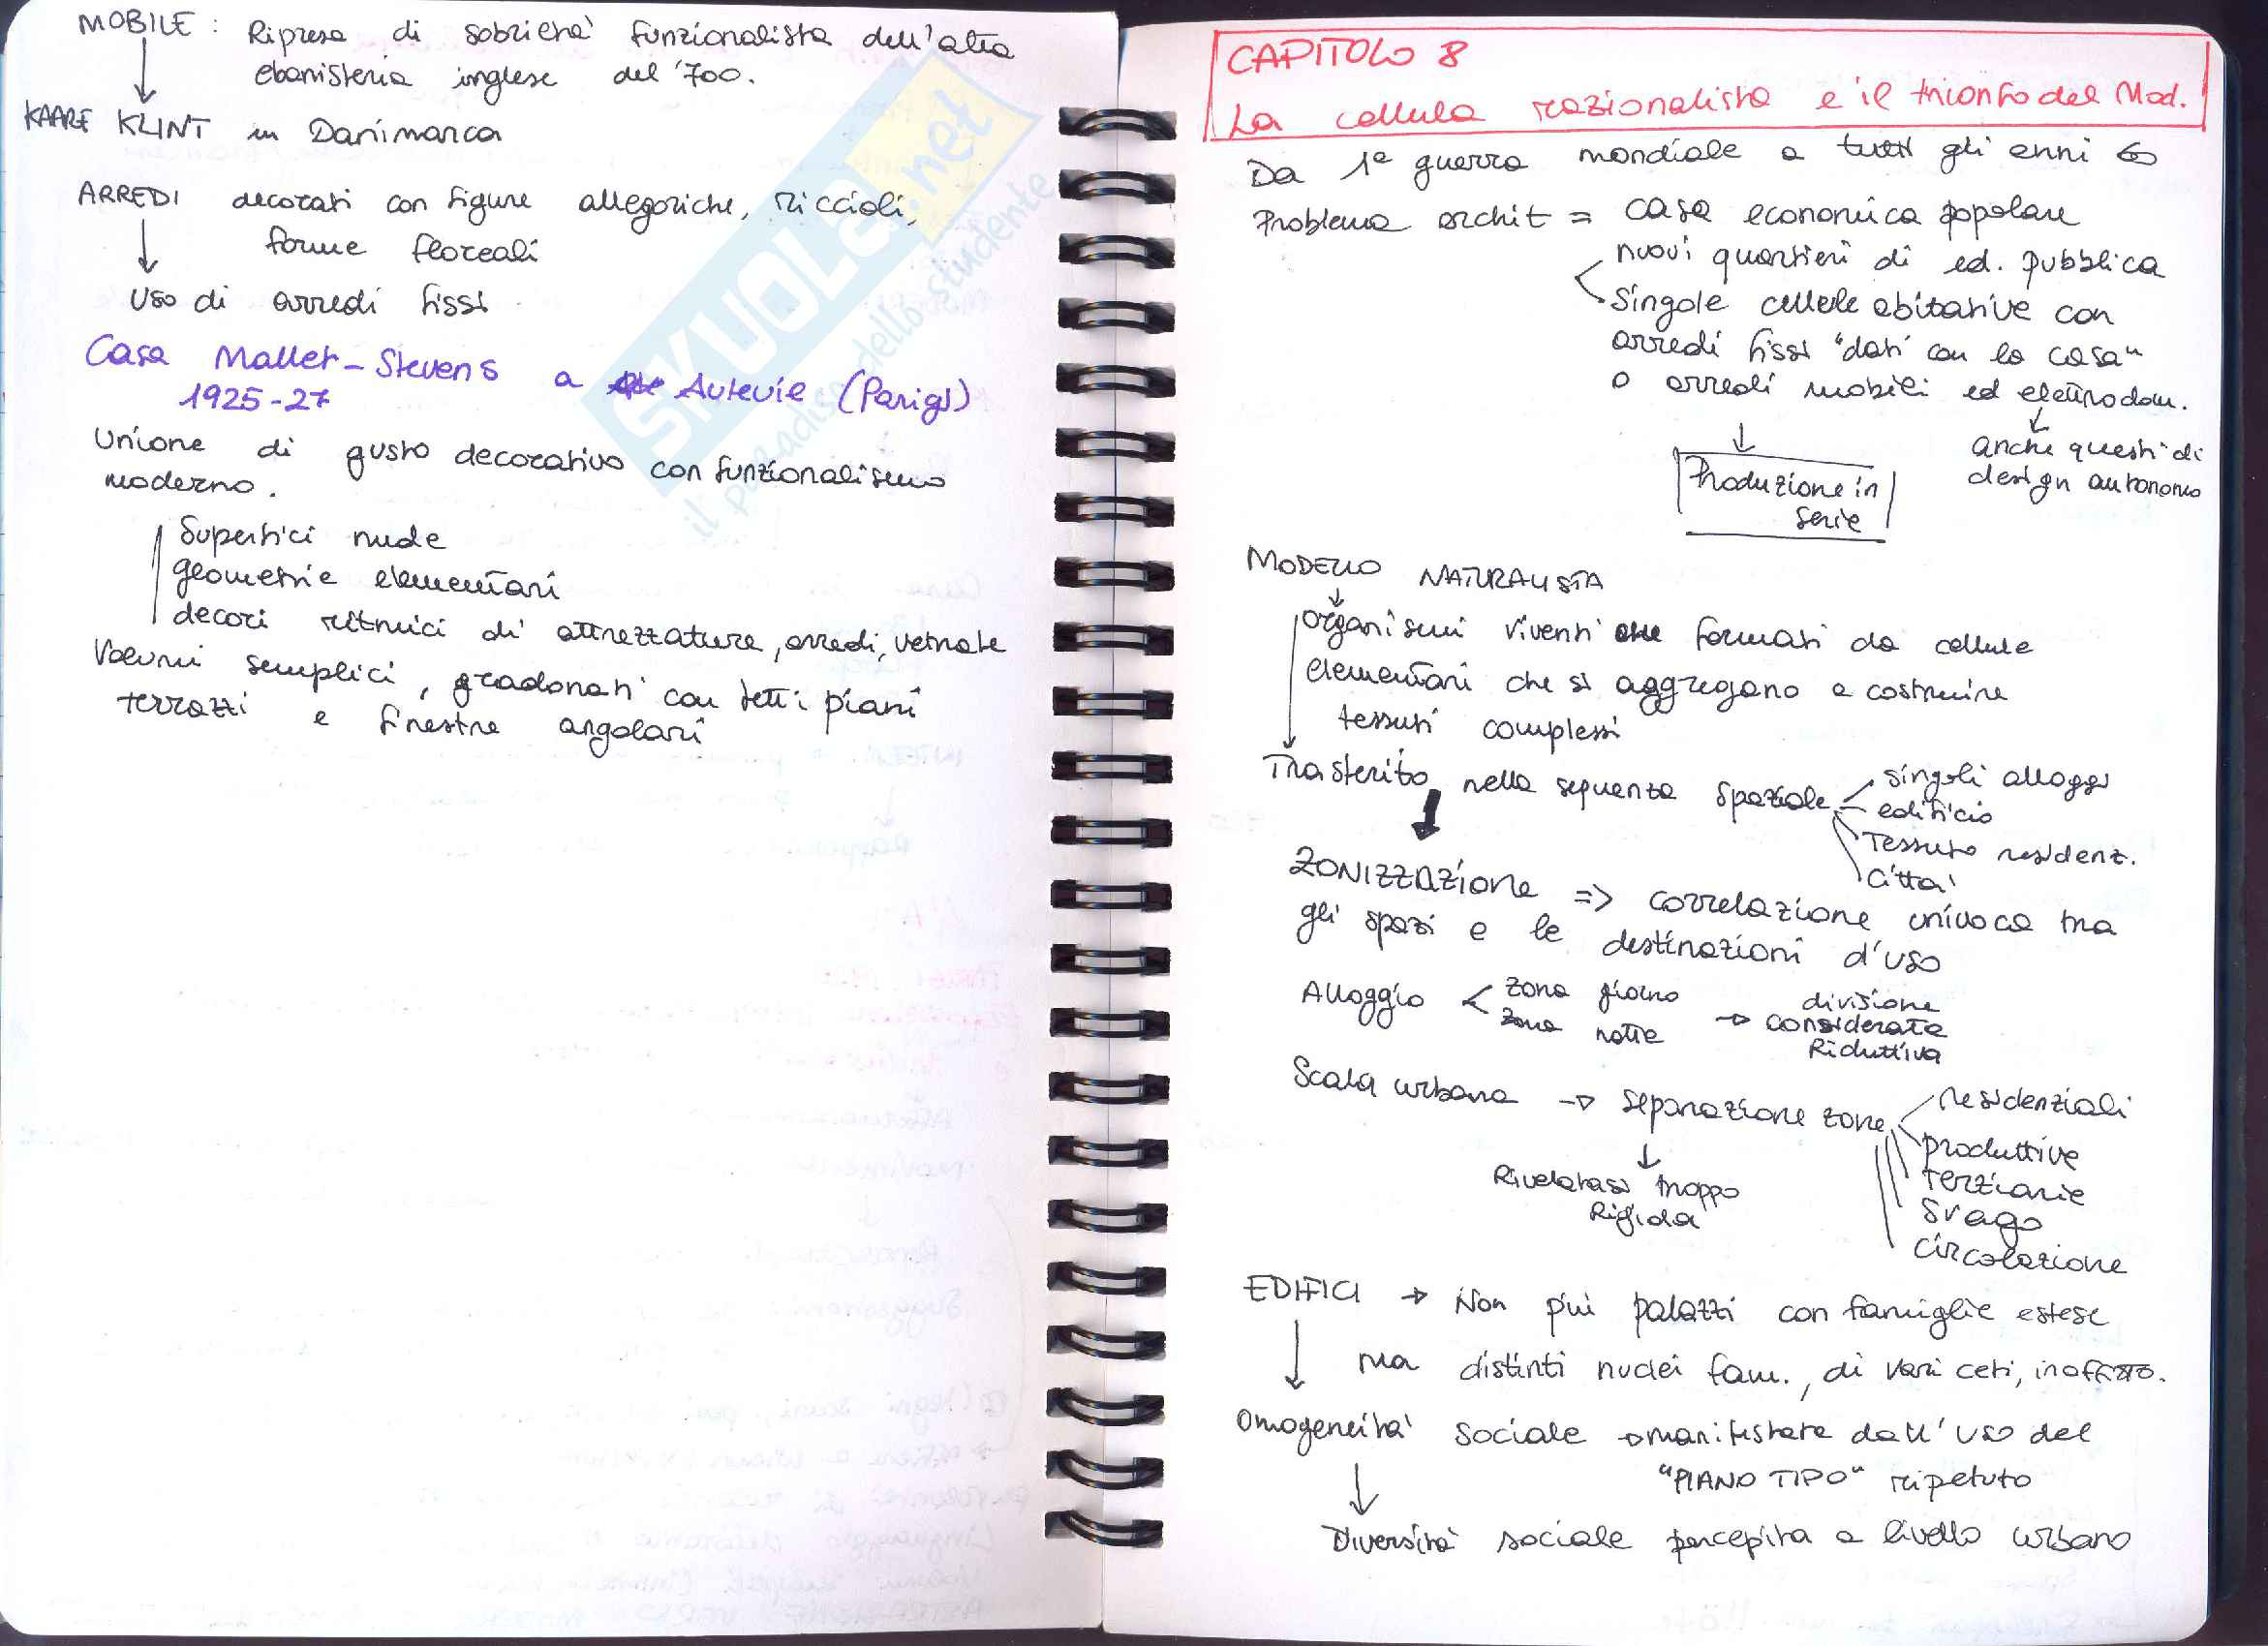 MOBILE : Ripresa di sobrietà funzionalista dell'alta
ebanisteria inglese del '700.
KAARE KLINT in Danimarca
ARREDI decorati con figure allegoriche, riccioli,
forme floreali
Uso di arredi fissi
Casa Mallet-Stevens a Auteuie (Parigi)
1925-27
Unione di gusto decorativo con funzionalismo
moderno.
Superfici nude
geometrie elementari
decori ritmici di attrezzature, arredi, vetrate
Volumi semplici, gradonati con tetti piani
terrazzi e finestre angolari
SKUOLA.net
il paradiso dello studente
CAPITOLO 8
La cellula razionalista e il trionfo del Mod.
Da 1ª guerra mondiale a tutti gli anni 60
Problema archit = casa economica popolare
nuovi quartieri di ed. pubblica
singole cellule abitative con
arredi fissi "dati con la casa"
o arredi mobili ed elettrodom.
Produzione in
serie
anche questi di
design autonomo
MODELLO NATURALISTA
organismi viventi formati da cellule
elementari che si aggregano a costruire
tessuti complessi
Trasferito nella sequenza spaziale
singoli alloggi
edificio
Tessuto residenz.
città
ZONIZZAZIONE => correlazione univoca tra
gli spazi e le destinazioni d'uso
Alloggio < zona giorno
zona notte
→ divisione
considerata
Riduttiva
Scala urbana → separazione zone
residenziali
produttive
terziarie
svago
circolazione
Rivelatasi troppo
Rigida
EDIFICI → Non più palazzi con famiglie estese
ma distinti nuclei fam., di vari ceti, in affitto.
Omogeneità sociale → manifestata dall'uso del
"PIANO TIPO" ripetuto
Diversità sociale percepita a livello urbano